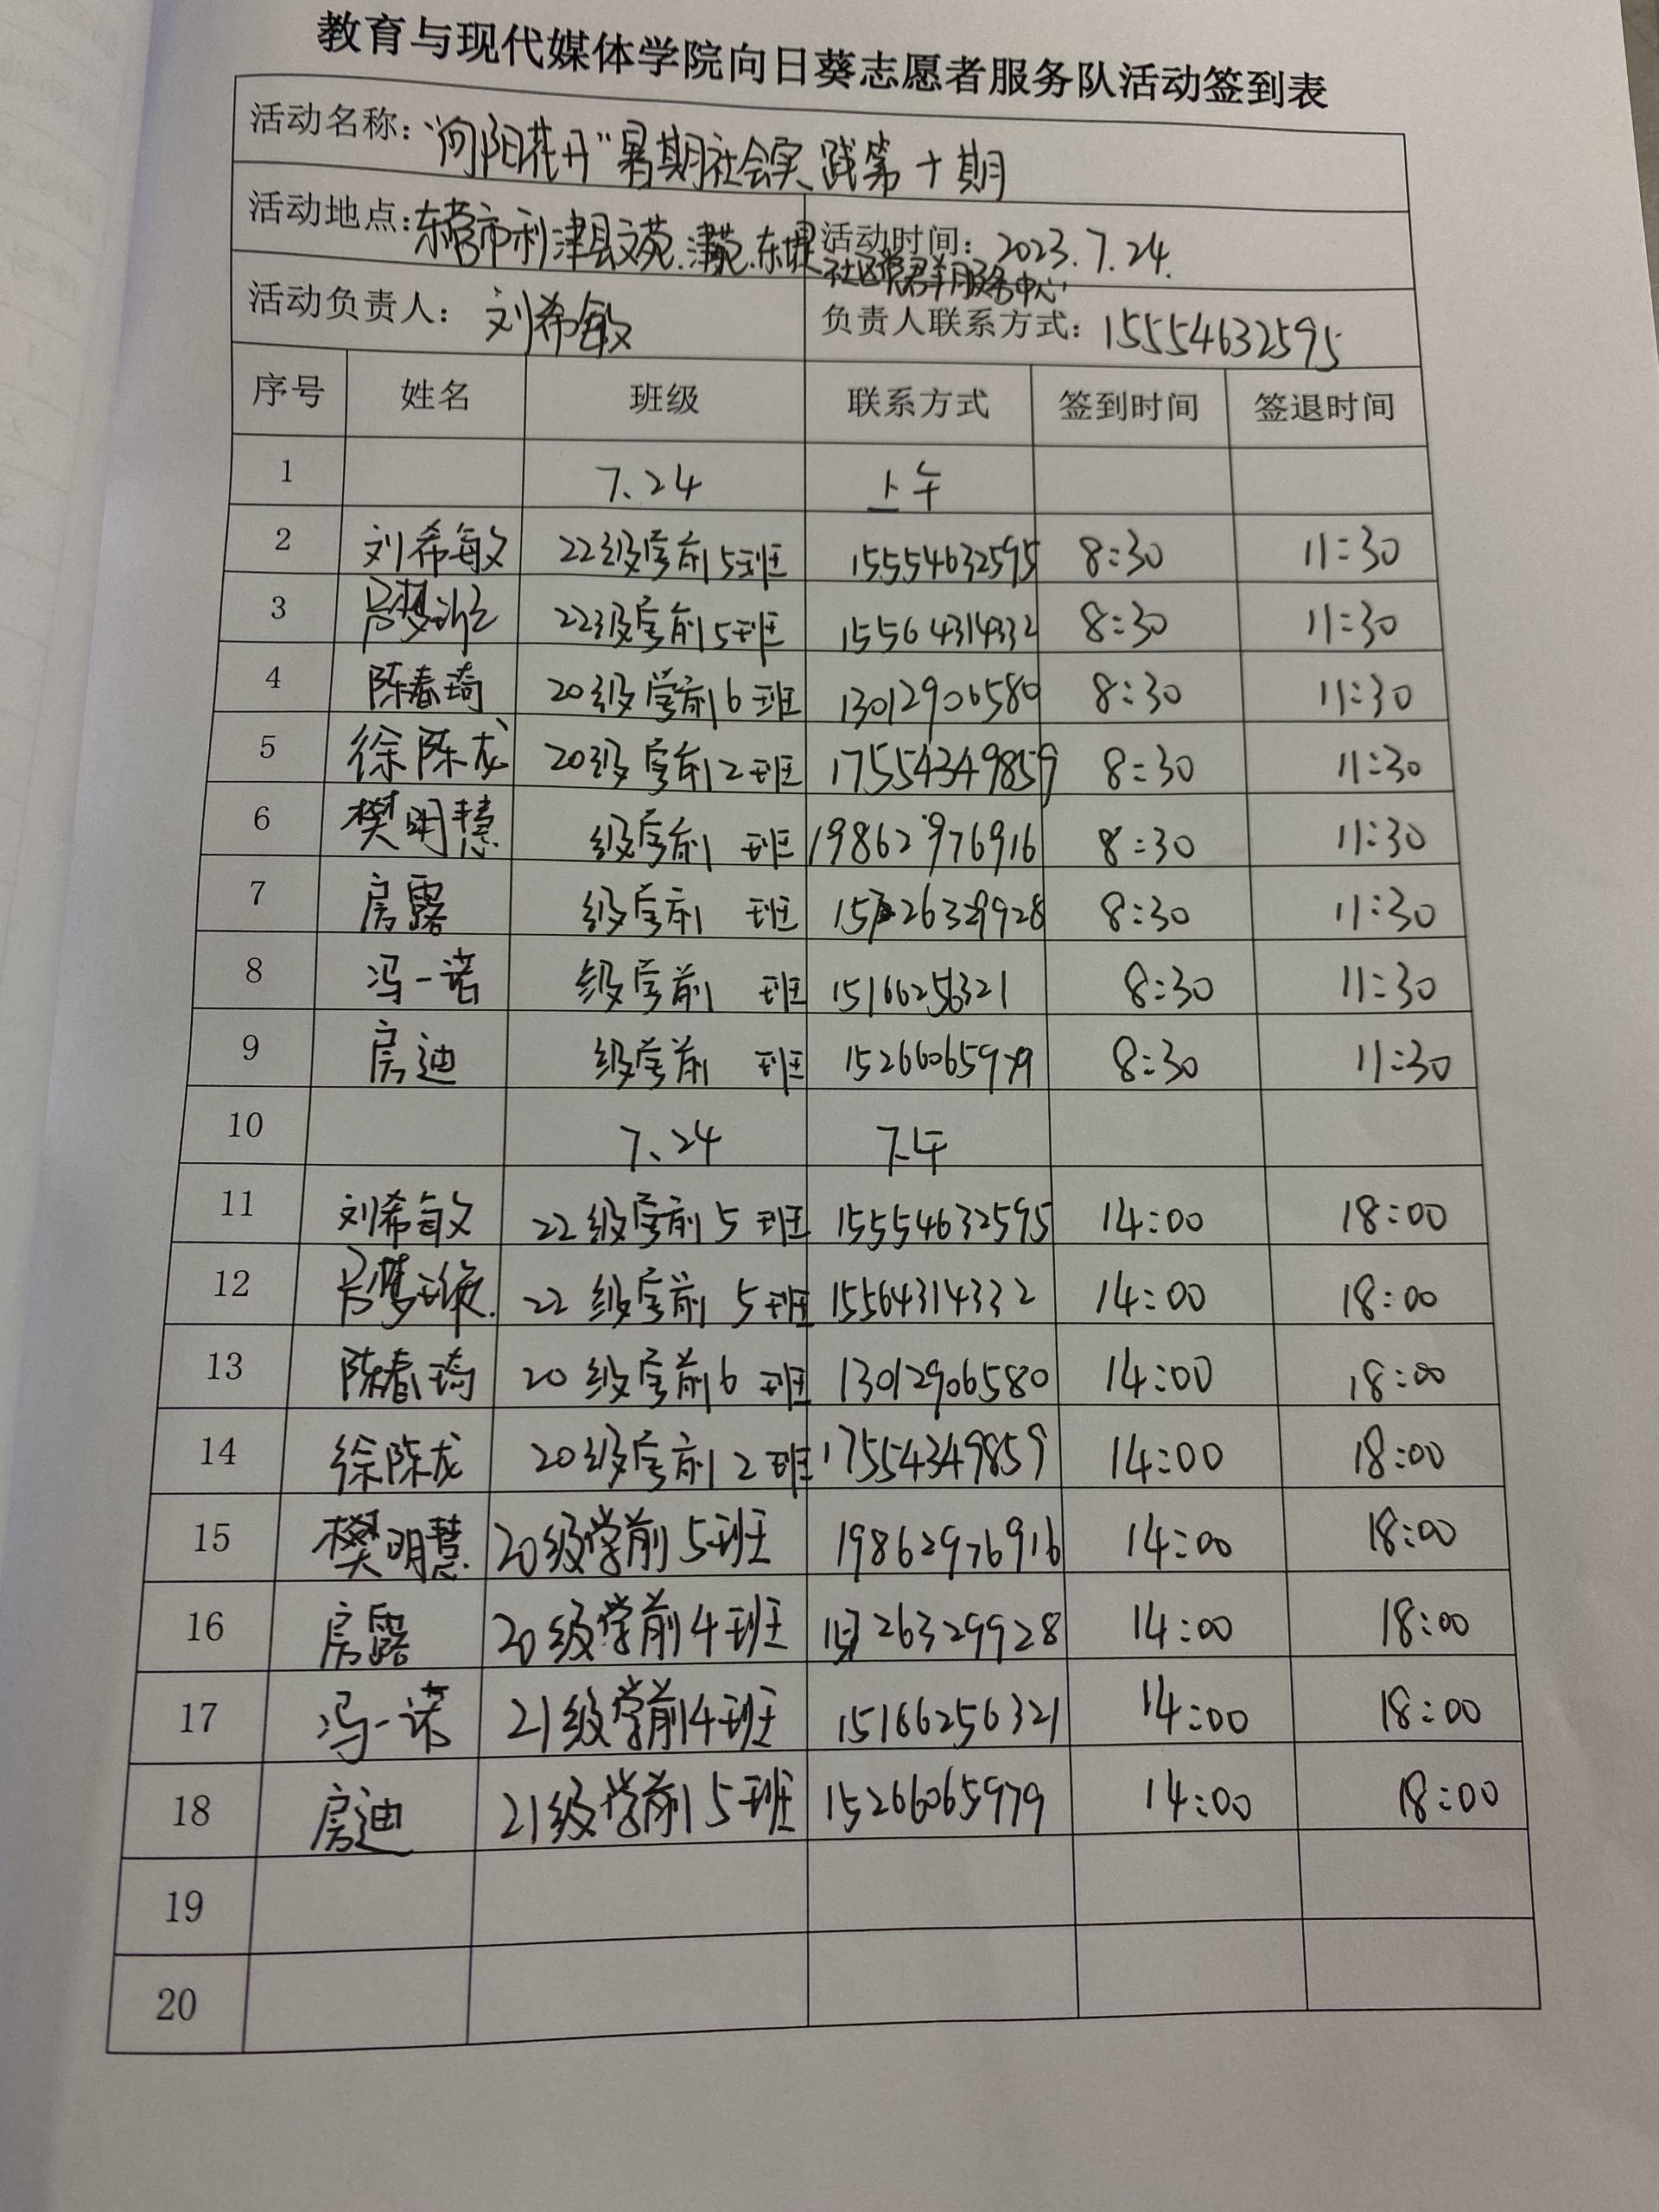 教育与现代媒体学院向日葵志愿者服务队活动签到表
活动名称：“向阳花开”暑期社会实践第十期
活动地点：东营市利津县文苑.津苑.东堤社区党群服务中心 活动时间：2023.7.24.
活动负责人：刘希敏 负责人联系方式：15554632595
序号 姓名 班级 联系方式 签到时间 签退时间
1 7.24 上午
2 刘希敏 22级学前5班 15554632595 8:30 11:30
3 吕梦 22级学前5班 15564314332 8:30 11:30
4 陈春琦 20级学前6班 13012906580 8:30 11:30
5 徐陈龙 20级学前2班 17554349859 8:30 11:30
6 樊明慧 级学前 班 19862976916 8:30 11:30
7 房露 级学前 班 8:30 11:30
8 冯一诺 级学前 班 15166256321 8:30 11:30
9 房迪 级学前 班 15266065979 8:30 11:30
10 7.24 下午
11 刘希敏 22级学前5班 15554632595 14:00 18:00
12 吕梦 22级学前5班 15564314332 14:00 18:00
13 陈春琦 20级学前6班 13012906580 14:00 18:00
14 徐陈龙 20级学前2班 17554349859 14:00 18:00
15 樊明慧 20级学前5班 19862976916 14:00 18:00
16 房露 20级学前4班 14:00 18:00
17 冯一诺 21级学前4班 15166256321 14:00 18:00
18 房迪 21级学前5班 15266065979 14:00 18:00
19
20